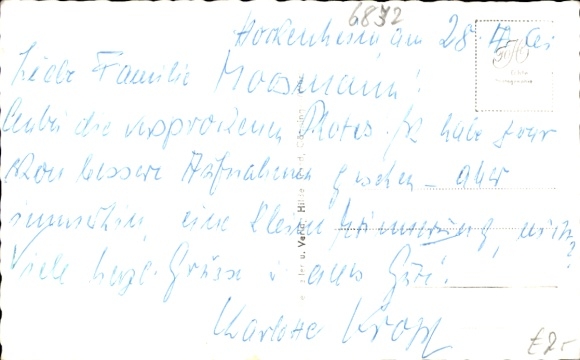 6832
Hockenheim, am 28.
Liebe Familie Moosmann!
Anbei die versprochenen Photos. Ich habe zwar
schon bessere Aufnahmen gesehen – aber
immerhin, eine kleine Erinnerung, nicht?
Viele herzl. Grüsse u. alles Gute!
Charlotte Kropf